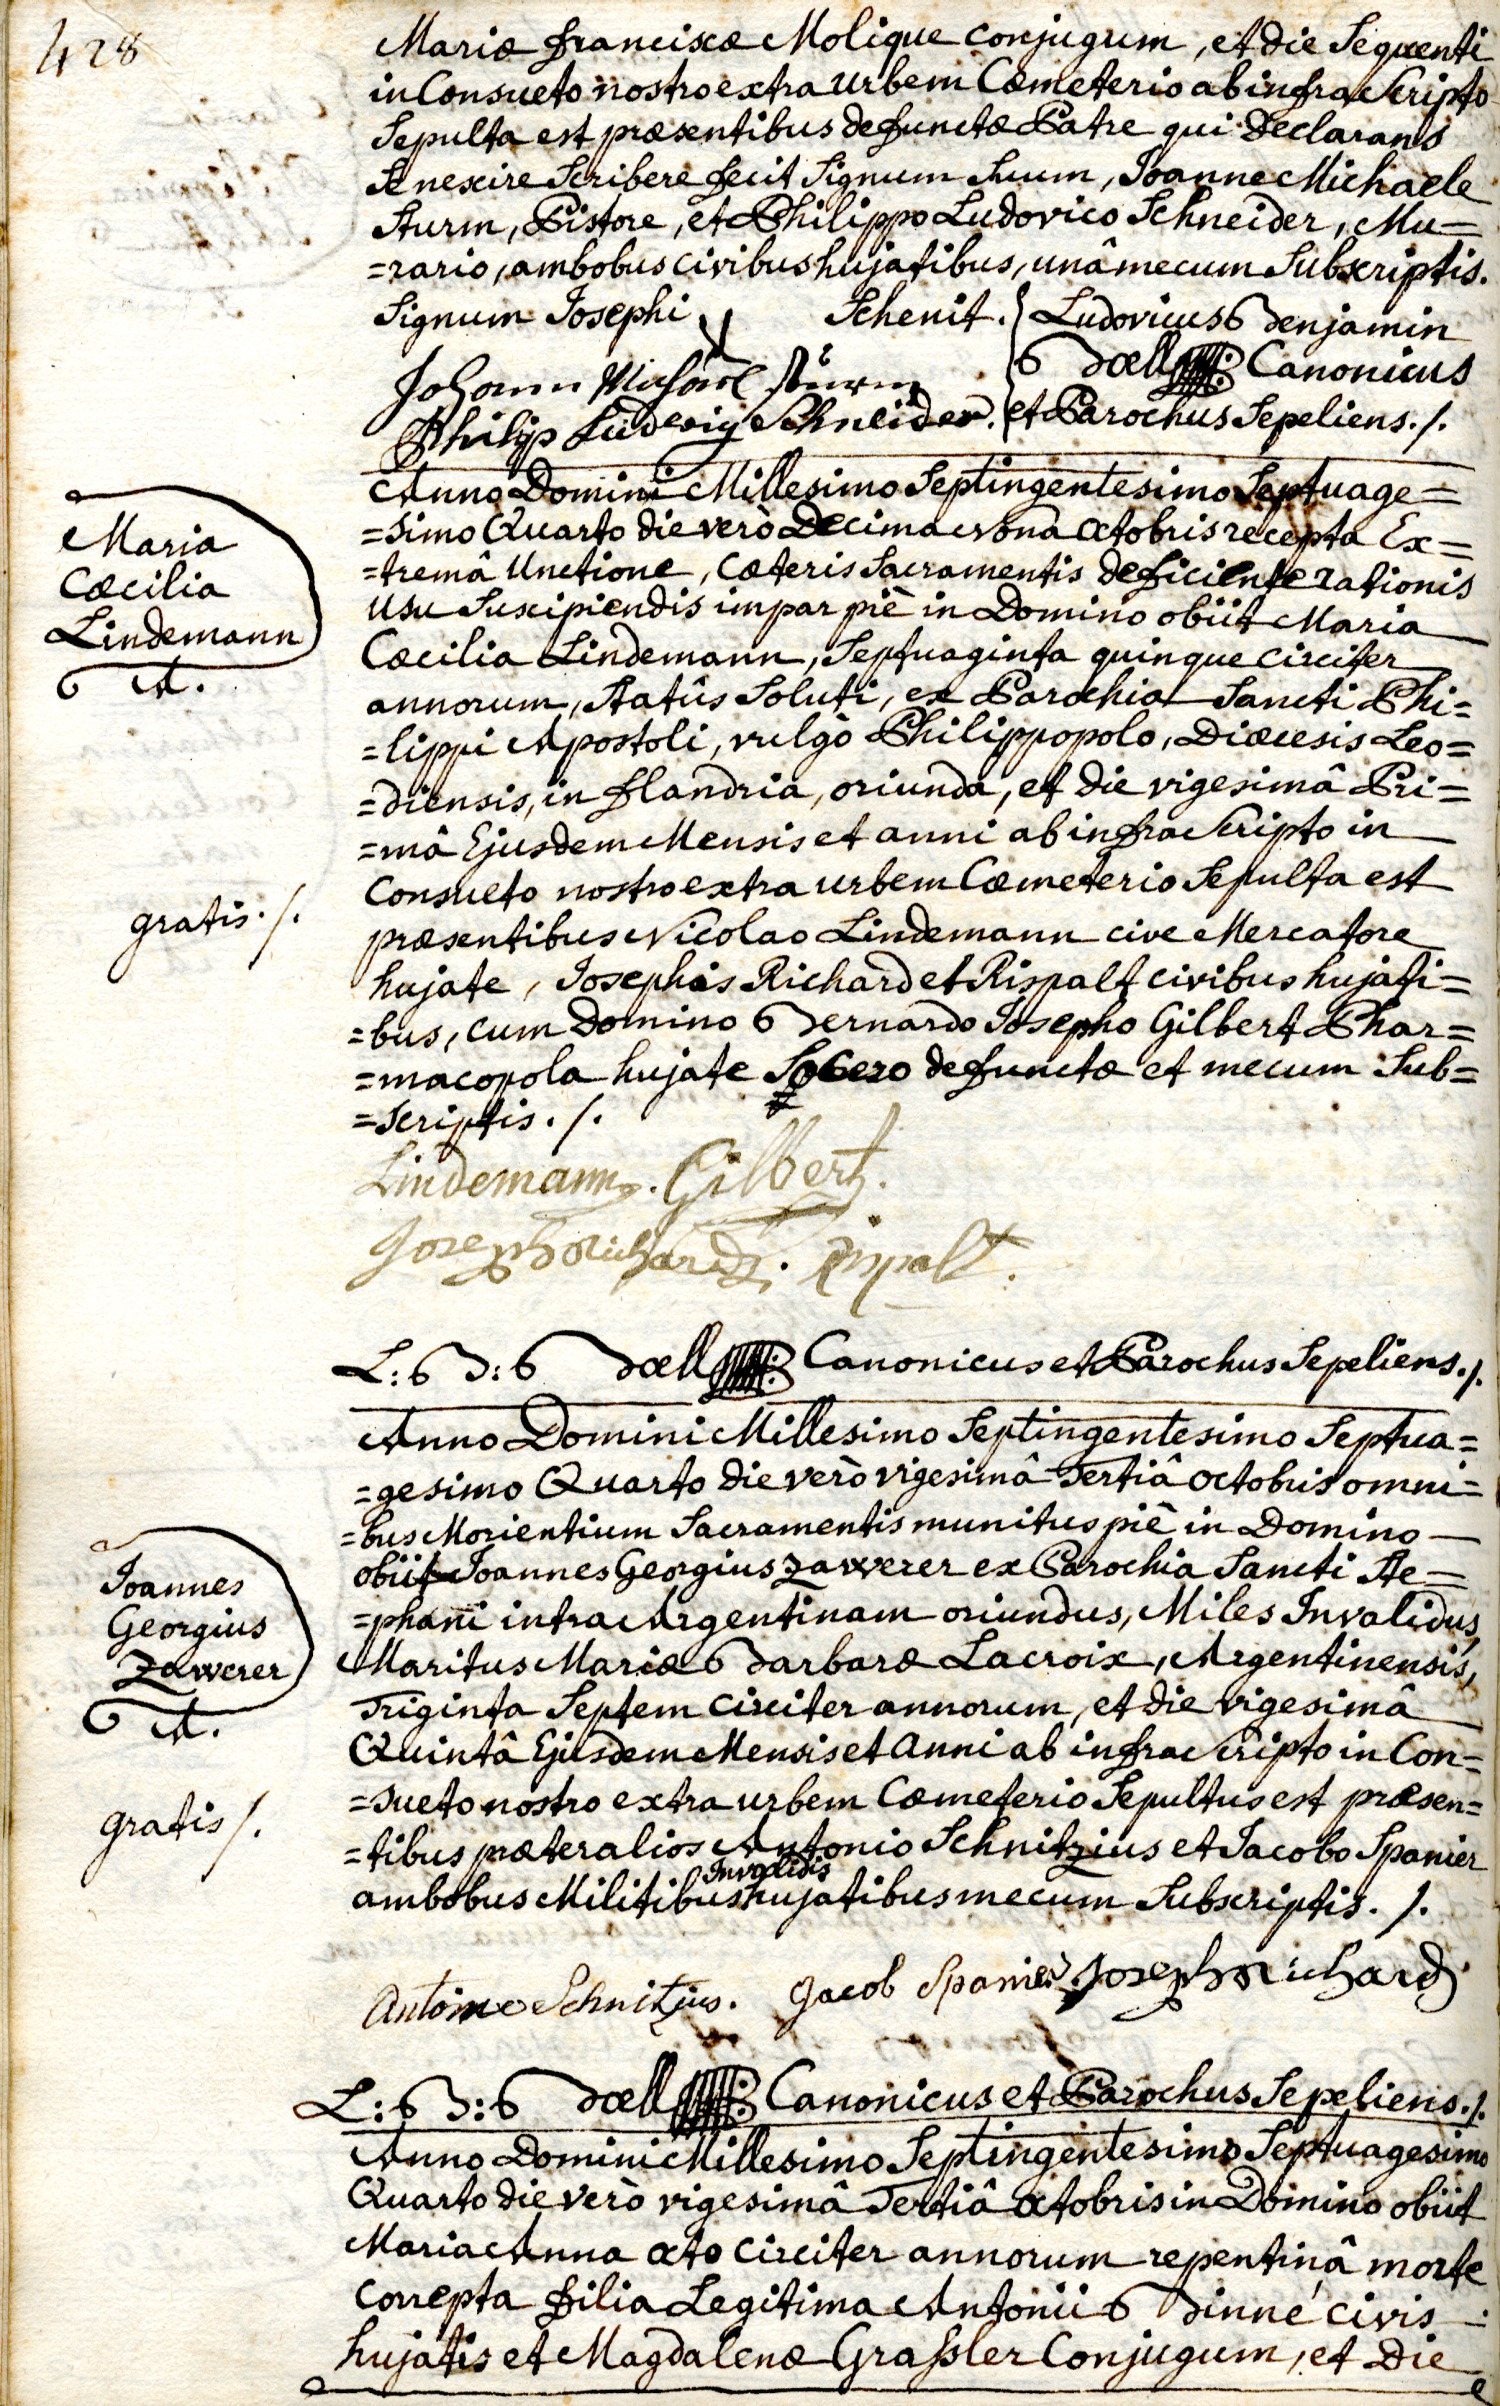 428
Mariæ Franciscæ Molique Conjugum, et die Sequenti
in Consueto nostro extra urbem Cœmeterio ab infra Scripto
Sepulta est præsentibus defunctæ Patre qui Declarans
Se nescire Scribere fecit Signum Suum, Joanne Michaele
Sturm, Pistore, et Philippo Ludovico Schneider, Mu=
=rario, ambobus civibus hujatibus, unâ mecum Subscriptis.
Signum Josephi Schenit. Ludovicus Benjamin
Johann Michael Sturm Bœll Canonicus
Philip Ludwig Schneider. et Parochus Sepeliens./.
Maria
Cœcilia
Lindemann
A.
gratis./.
Anno Domini Millesimo Septingentesimo Septuage=
=simo Quarto die verò Decima Nona octobris recepta Ex=
=tremâ Unctione, Cæteris Sacramentis deficiente rationis
usu Suscipiendis impar piè in Domino obiit Maria
Cœcilia Lindemann, Septuaginta quinque circiter
annorum, Statûs Soluti, ex Parochia Sancti Phi=
=lippi Apostoli, vulgò Philippopolo, Diœcesis Leo=
=diensis, in Flandria, oriunda, et die vigesimâ Pri=
=mâ Ejusdem Mensis et anni ab infra Scripto in
Consueto nostro extra urbem Cœmeterio Sepulta est
præsentibus Nicolao Lindemann cive Mercatore
hujate, Josephis Richard et Rispalt civibus hujati=
=bus, cum Domino Bernardo Josepho Gilbert Phar=
=macopola hujate Socero defunctæ et mecum Sub=
=scriptis./.
Lindemann. Gilbert.
Joseph Richard. Rispalt.
L: B: Bœll Canonicus et Parochus Sepeliens./.
Joannes
Georgius
Zawerer
A.
gratis/.
Anno Domini Millesimo Septingentesimo Septua=
=gesimo Quarto die verò vigesimâ Tertiâ octobris omni=
=bus Morientium Sacramentis munitus piè in Domino
obiit Joannes Georgius Zawerer ex Parochia Sancti Ste=
=phani intra Argentinam oriundus, Miles Invalidus,
Maritus Mariæ Barbaræ Lacroix, Argentinensis,
Triginta Septem circiter annorum, et die vigesimâ
Quintâ Ejusdem Mensis et Anni ab infra Scripto in Con=
=sueto nostro extra urbem Cœmeterio Sepultus est præsen=
=tibus præter alios Antonio Schnitzius et Jacobo Spanier
ambobus Militibus Invalidis hujatibus mecum Subscriptis./.
Antoine Schnitzius. Jacob Spanier Joseph Richard
L: B: Bœll Canonicus et Parochus Sepeliens./.
Anno Domini Millesimo Septingentesimo Septuagesimo
Quarto die verò vigesimâ Tertiâ octobris in Domino obiit
Maria Anna octo circiter annorum repentinâ morte
correpta filia Legitima Antonii Binné civis
hujatis et Magdalenæ Graßler Conjugum, et Die